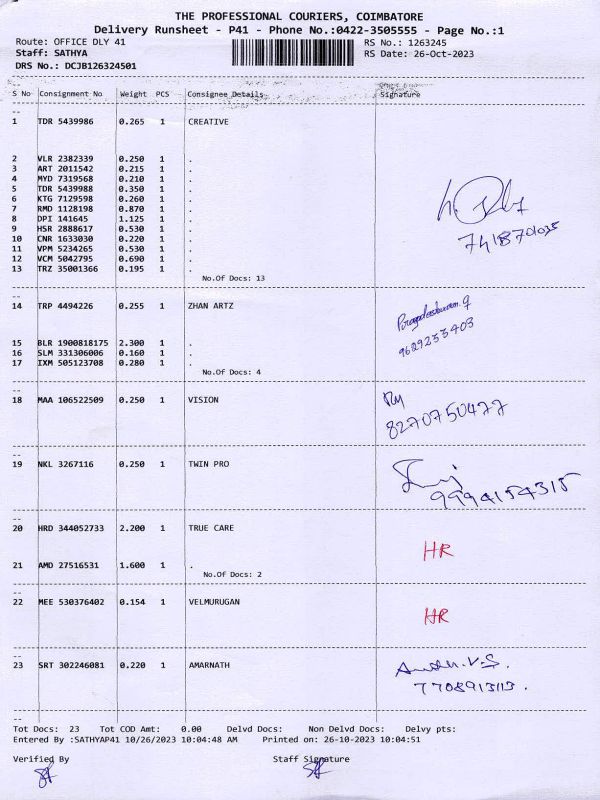 THE PROFESSIONAL COURIERS, COIMBATORE
Delivery Runsheet - P41 - Phone No.:0422-3505555 - Page No.:1
Route: OFFICE DLY 41 RS No.: 1263245
Staff: SATHYA RS Date: 26-Oct-2023
DRS No.: DCJB126324501
S No Consignment No Weight PCS Consignee Details Signature
1 TDR 5439986 0.265 1 CREATIVE
2 VLR 2382339 0.250 1 .
3 ART 2011542 0.215 1 .
4 MYD 7319568 0.210 1 .
5 TDR 5439988 0.350 1 .
6 KTG 7129598 0.260 1 .
7 RMD 1128198 0.870 1 .
8 DPI 141645 1.125 1 .
9 HSR 2888617 0.530 1 .
10 CNR 1633030 0.220 1 .
11 VPM 5234265 0.530 1 .
12 VCM 5042795 0.690 1 .
13 TRZ 35001366 0.195 1 .
No.Of Docs: 13
14 TRP 4494226 0.255 1 ZHAN ARTZ
9629233403
15 BLR 1900818175 2.300 1 .
16 SLM 331306006 0.160 1 .
17 IXM 505123708 0.280 1 .
No.Of Docs: 4
18 MAA 106522509 0.250 1 VISION
8270750477
19 NKL 3267116 0.250 1 TWIN PRO
9994154315
20 HRD 344052733 2.200 1 TRUE CARE
HR
21 AMD 27516531 1.600 1 .
No.Of Docs: 2
22 MEE 530376402 0.154 1 VELMURUGAN
HR
23 SRT 302246081 0.220 1 AMARNATH
Tot Docs: 23 Tot COD Amt: 0.00 Delvd Docs: Non Delvd Docs: Delvy pts:
Entered By :SATHYAP41 10/26/2023 10:04:48 AM Printed on: 26-10-2023 10:04:51
Verified By Staff Signature